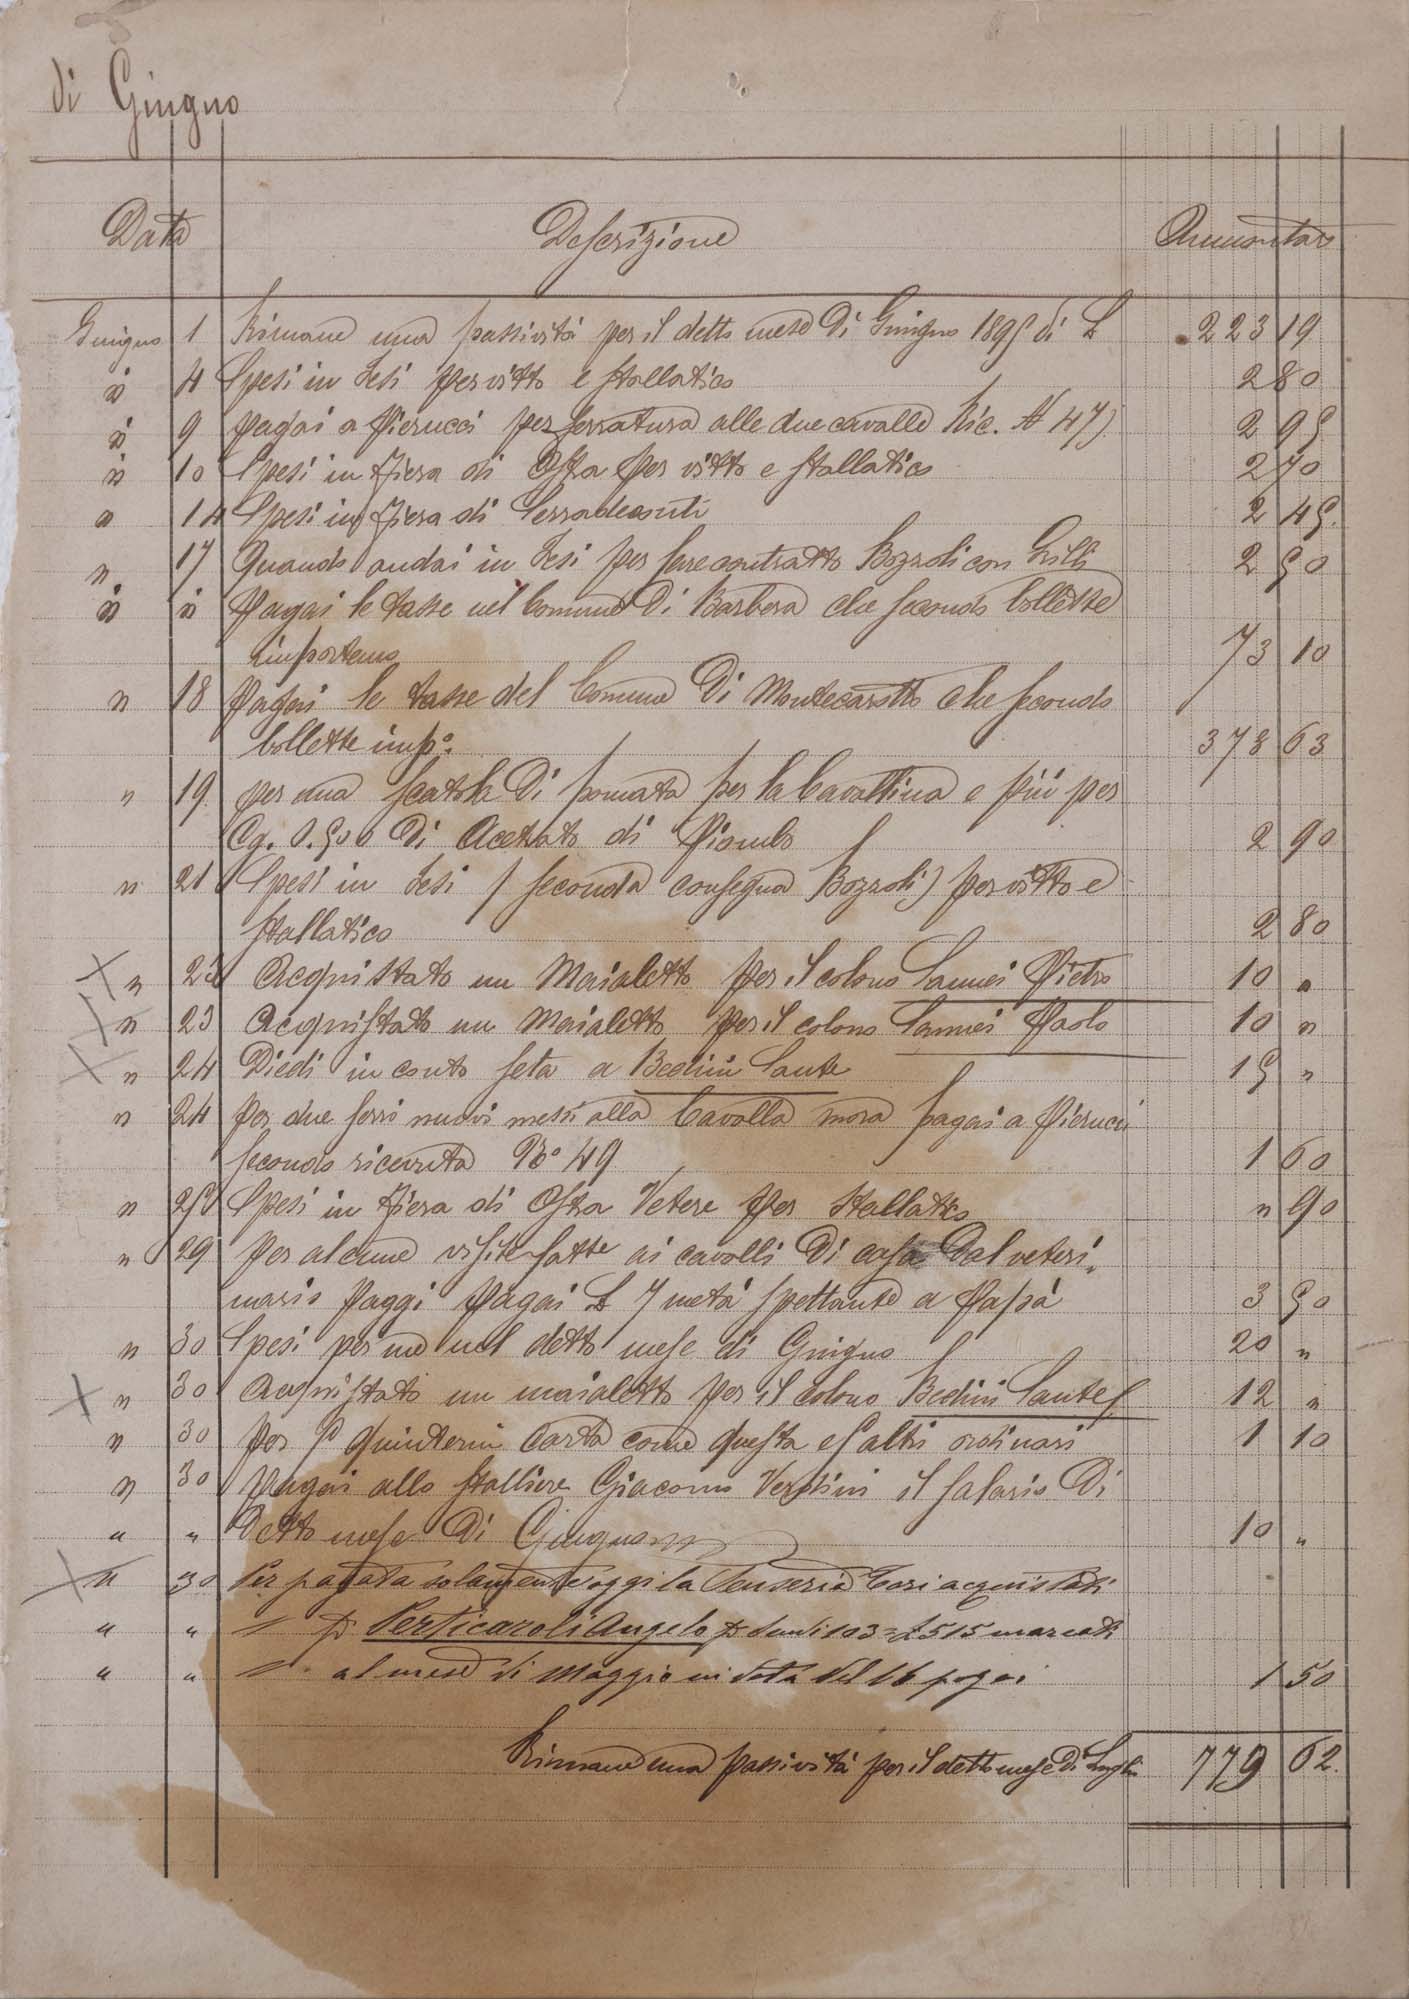 di Giugno
Data Descrizione Ammontare
Giugno 1 Rimane una passività per il detto mese di Giugno 1895 di L 223 19
" 4 Spesi in Jesi per vitto e stallatico 2 80
" 9 pagai a Pierucci per ferratura alle due cavalle Ric. N 47) 2 95
" 10 Spesi in fiera di Ostra per vitto e stallatico 2 70
" 14 Spesi in fiera di Serradeconti 2 45.
" 17 Quando andai in Jesi per fare contratto Bozzoli con Grilli 2 50
" " Pagai le tasse nel Comune di Barbara che secondo bollette
importano 73 10
" 18 Pagai le tasse del Comune di Montecarotto che secondo
bollette impo. 378 63
" 19. per una scatola di pomata per la Cavallina e più per
Cg. 0.500 di Acetato di Piombo 2 90
" 21 Spesi in Jesi (seconda consegna Bozzoli) per vitto e
stallatico 2 80
" 22 Acquistato un Maialetto per il colono Sannei Pietro 10 "
" 23 Acquistato un Maialetto per il colono Sannei Paolo 10 "
" 24 Diedi in conto seta a Bedini Sante 15 "
" 24 Per due ferri nuovi messi alla Cavalla mora pagai a Pierucci
secondo ricevuta No 49 1 60
" 25 Spesi in fiera di Ostra Vetere per stallatico " 90
" 29 Per alcune visite fatte ai cavalli di casa dal veteri-
nario Paggi pagai L 7 metà spettante a Papà 3 50
" 30 Spesi per me nel detto mese di Giugno 20 "
" 30 Acquistato un maialetto per il colono Bedini Sante 12 "
" 30 per 5 quinterni Carta come questa e 5 altri ordinari 1 10
" 30 Pagai allo stalliere Giacomo Verdini il salario di
" " detto mese di Giugno 10 "
" 30 Per pagata solamente oggi la Senseria Tori acquistati
" " " Perticaroli Angelo Scudi 103 = £ 515 mercati
" " " al mese di Maggio in data del 16 pagai 1 50
Rimane una passività per il detto mese di Luglio 779 62.